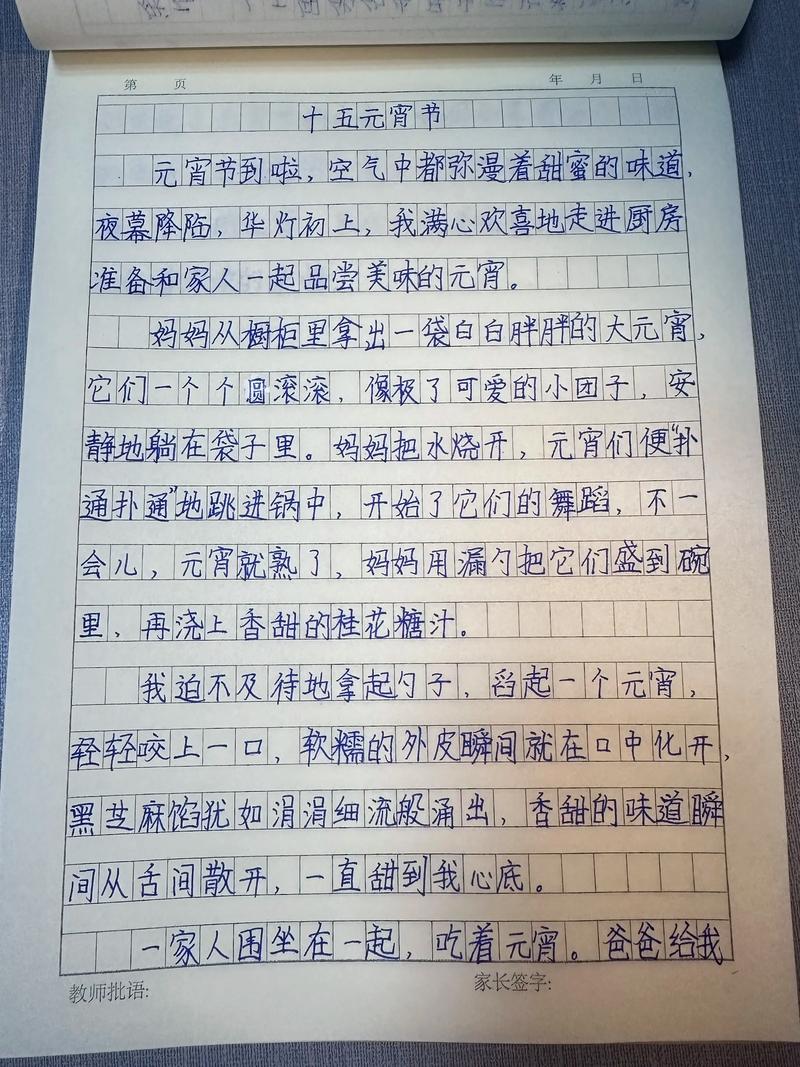 第 页 年 月 日
十五元宵节
元宵节到啦，空气中都弥漫着甜蜜的味道，
夜幕降临，华灯初上，我满心欢喜地走进厨房
准备和家人一起品尝美味的元宵。
妈妈从橱柜里拿出一袋白白胖胖的大元宵，
它们一个个圆滚滚，像极了可爱的小团子，安
静地躺在袋子里。妈妈把水烧开，元宵们便“扑
通扑通”地跳进锅中，开始了它们的舞蹈，不一
会儿，元宵就熟了，妈妈用漏勺把它们盛到碗
里，再浇上香甜的桂花糖汁。
我迫不及待地拿起勺子，舀起一个元宵，
轻轻咬上一口，软糯的外皮瞬间就在口中化开，
黑芝麻馅犹如涓涓细流般涌出，香甜的味道瞬
间从舌间散开，一直甜到我心底。
一家人围坐在一起，吃着元宵。爸爸给我
教师批语: 家长签字: